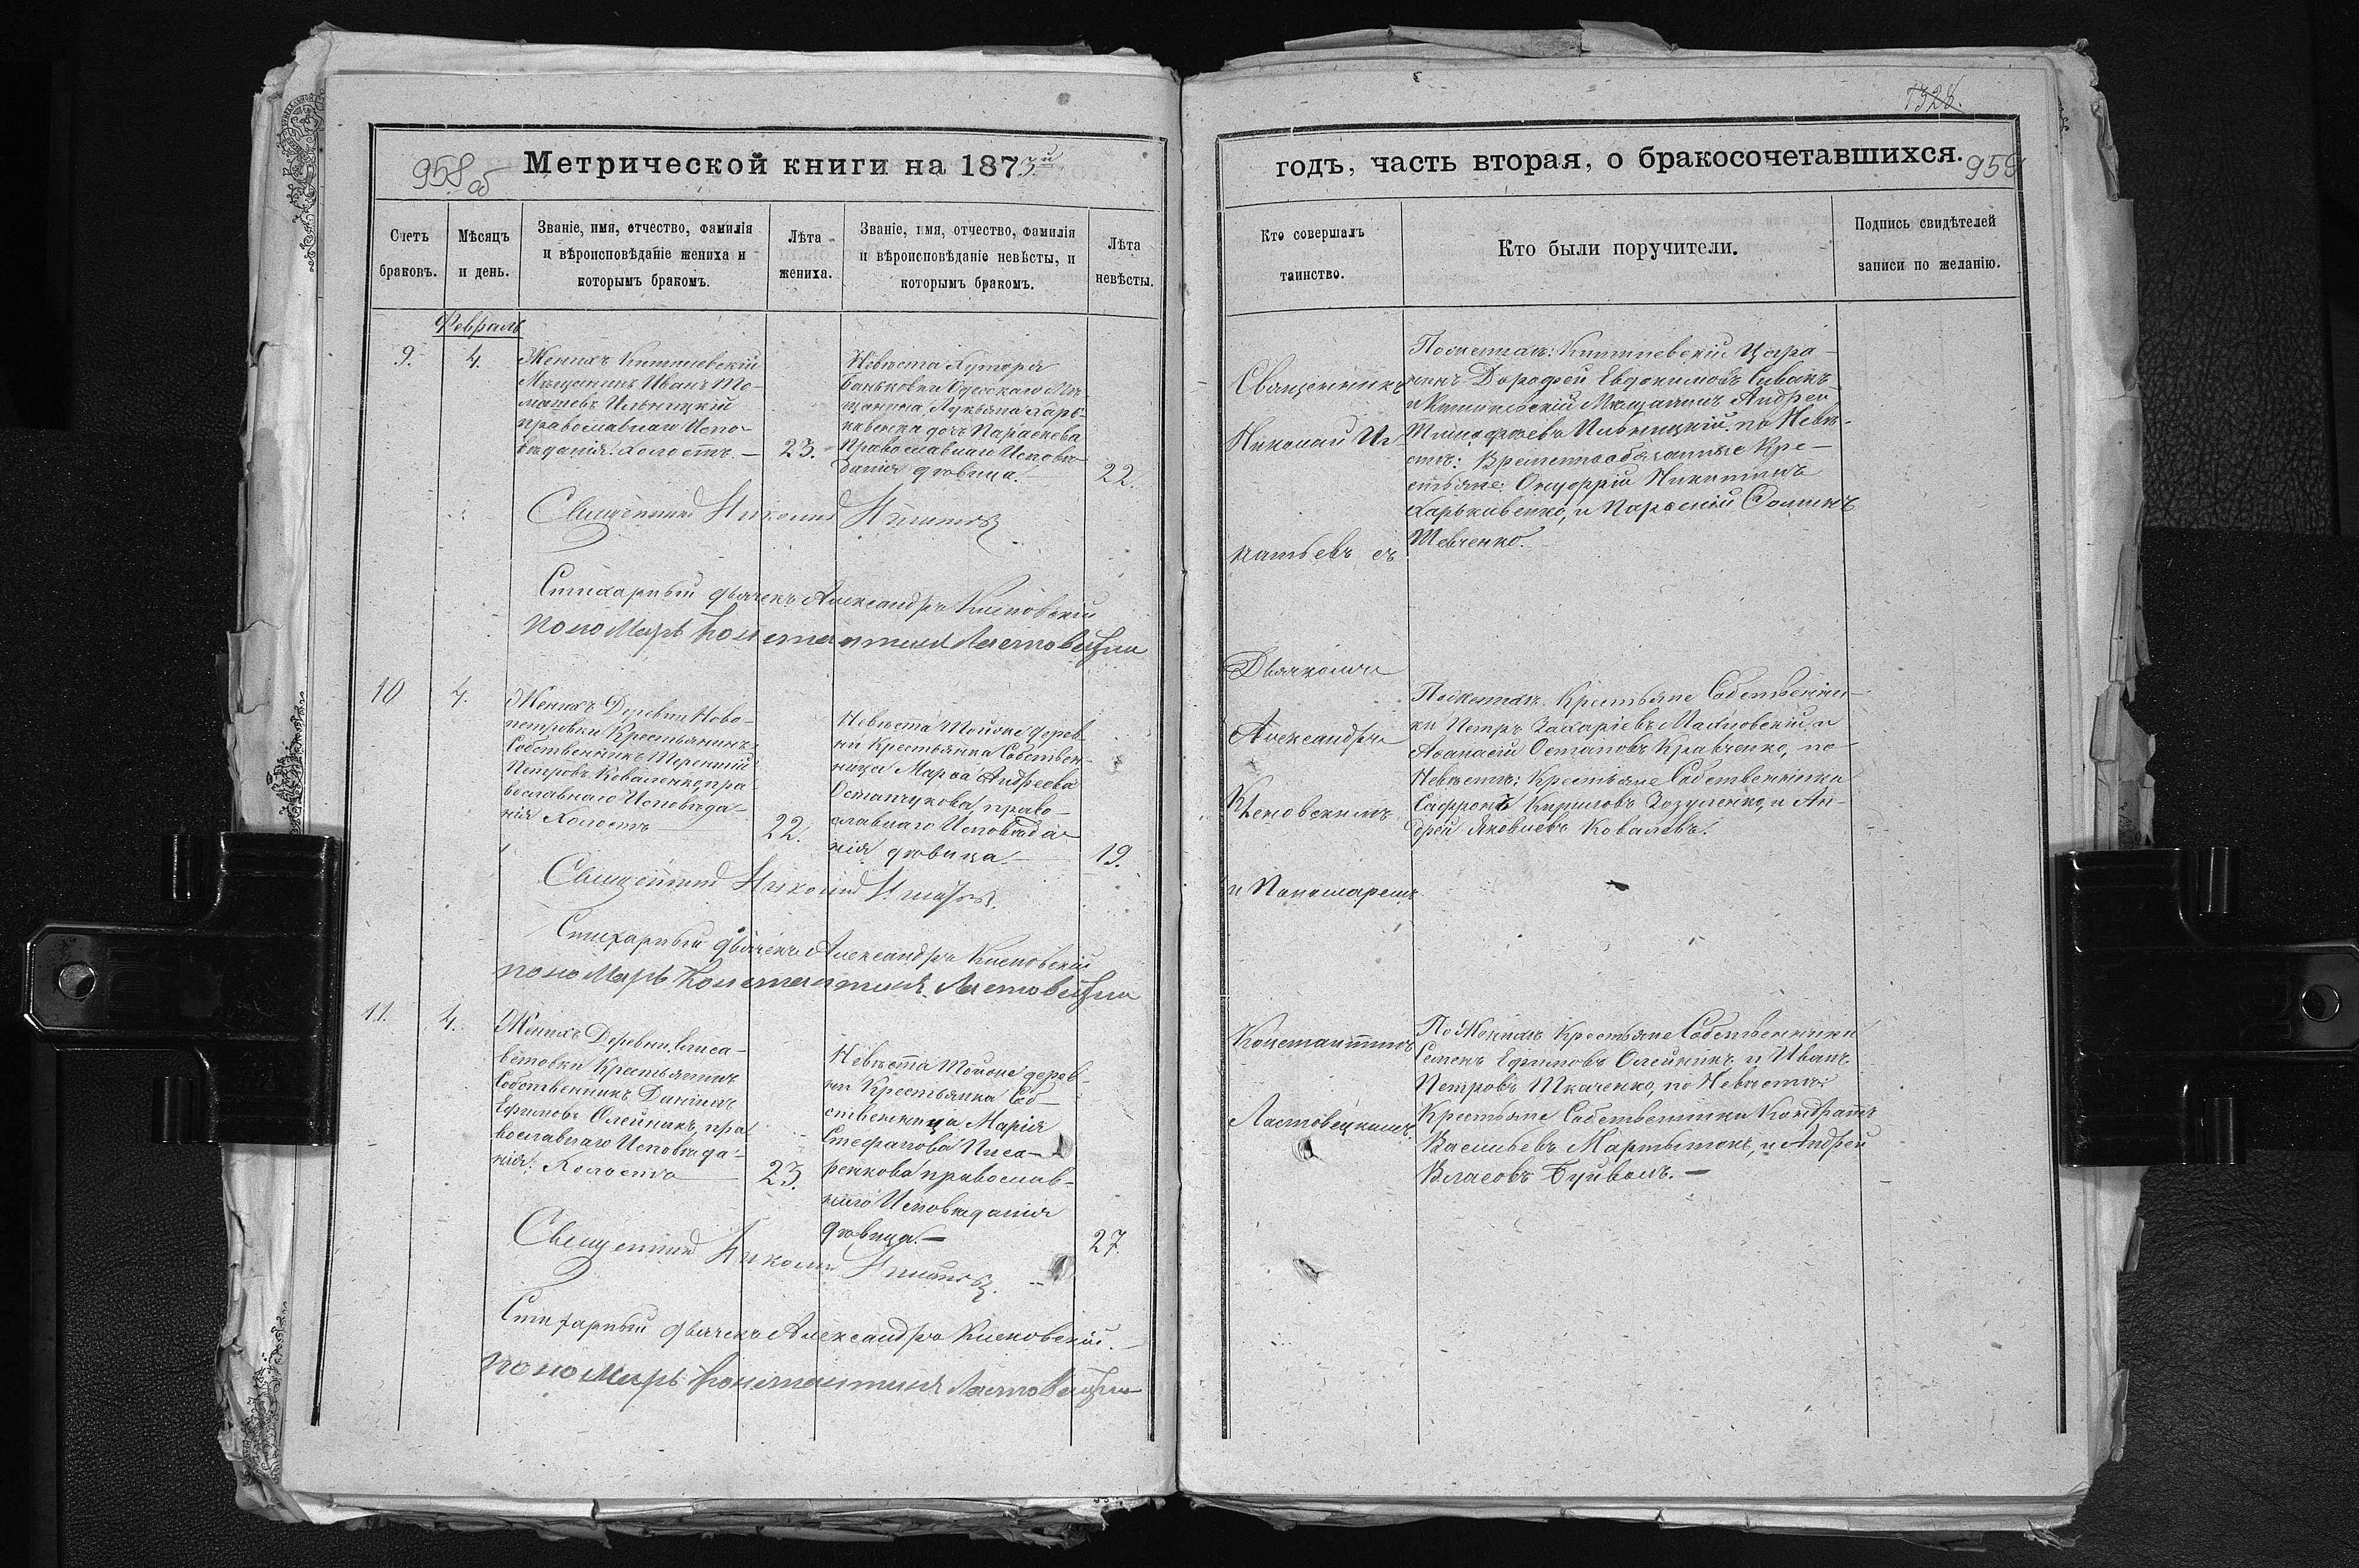 958 об
Метрической книги на 1873й
Счетъ браковъ.
Мѣсяцъ и день.
Званіе, имя, отчество, фамилія и вѣроисповѣданіе жениха и которымъ бракомъ.
Лѣта жениха.
Званіе, имя, отчество, фамилія и вѣроисповѣданіе невѣсты, и которымъ бракомъ.
Лѣта невѣсты.
Февраль
9.
4.
Женихъ Кишиневскій
Мѣщанинъ Иванъ То-
машевъ Ильницкій
православнаго Испо-
вѣданія. Холостъ. —
23.
Невѣста Хутора
Одескаго Мѣ-
щанина Лукьяна Харь-
ковенка дочь Параскева
Православнаго Исповѣ-
данія дѣвица. —
22.
Священникъ Николай
Стихарный дьячекъ Александръ
пономарь Константинъ Ластовецкій
10
4.
Женихъ Деревни Ново-
петровки Крестьянинъ
Собственникъ Терентій
Петровъ Коваленко, пра-
вославнаго Исповѣда-
нія Холостъ
22.
Невѣста Тойже дерев-
ни Крестьянка Собствен-
ница Марѳа Андреева
Остапчукова, право-
славнаго Исповѣда-
нія дѣвица. —
19.
Священникъ Николай
Стихарный дьячекъ Александръ
пономарь Константинъ Ластовецкій
11.
4.
Женихъ Деревни Елиса-
ветовки Крестьянинъ
Собственникъ Даніилъ
Ефимовъ Олейникъ, пра-
вославнаго Исповѣда-
нія: Холостъ
23.
Невѣста Тойже дерев-
ни Крестьянка Соб-
ственница Марія
Стефанова Писа-
ренкова православ-
наго Исповѣданія
дѣвица. —
27.
Священникъ Николай
Стихарный дьячекъ Александръ
пономарь Константинъ Ластовецкій
1328.
годъ, часть вторая, о бракосочетавшихся.
959
Кто совершалъ таинство.
Кто были поручители.
Подпись свидѣтелей записи по желанію.
Священникъ
Николай Иг-
натьевъ съ
Дьячкомъ
Александромъ
и Пономаремъ
Константиномъ
Ластовецкимъ.
По женихѣ: Кишиневскій Цара-
нинъ Дорофей Евдокимовъ Сивакъ
и Кишиневскій Мѣщанинъ Андрей
Тимофеевъ Ильницкій. по Невѣ-
стѣ: Временнообязанные Кре-
стьяне: Онуфрій Никитинъ
Харьковенко, и
Шевченко.
По женихѣ. Крестьяне Собственни-
ки Петръ Захаріевъ и
Аѳанасій Остаповъ Кравченко, по
Невѣстѣ: Крестьяне Собственники
Сафронъ Кириловъ Зозуленко, и Ан-
дрей Яковлевъ Ковалевъ.
По Женихѣ Крестьяне Собственники
Семенъ Ефимовъ Олейникъ и Иванъ
Петровъ Ткаченко, по Невѣстѣ:
Крестьяне Собственники Кондратъ
Васильевъ Мартынюкъ, и Андрей
Власовъ Буйволъ. —